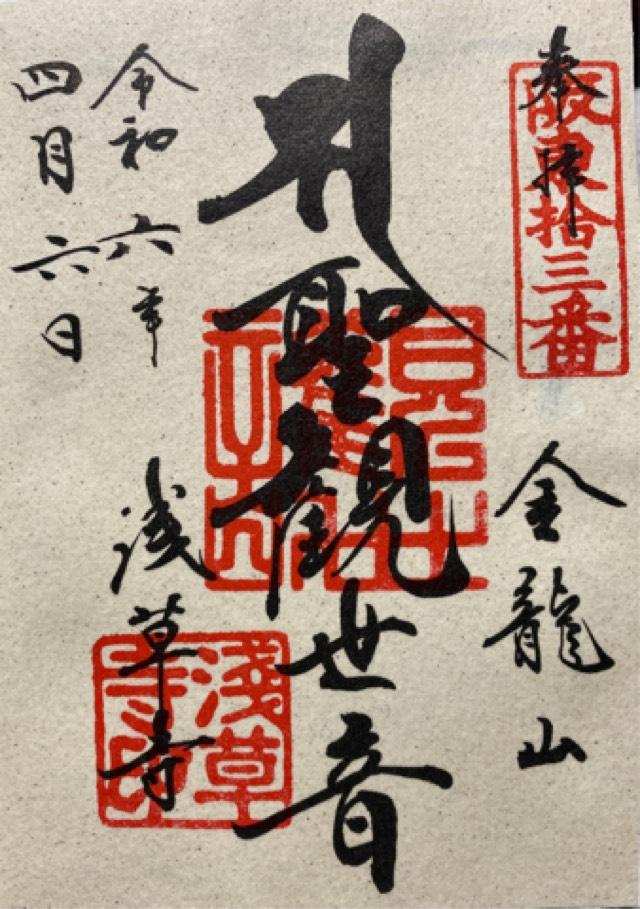 奉拝
阪東拾三番
金龍山
聖観世音
浅草寺
淺草寺印
令和六年
四月六日